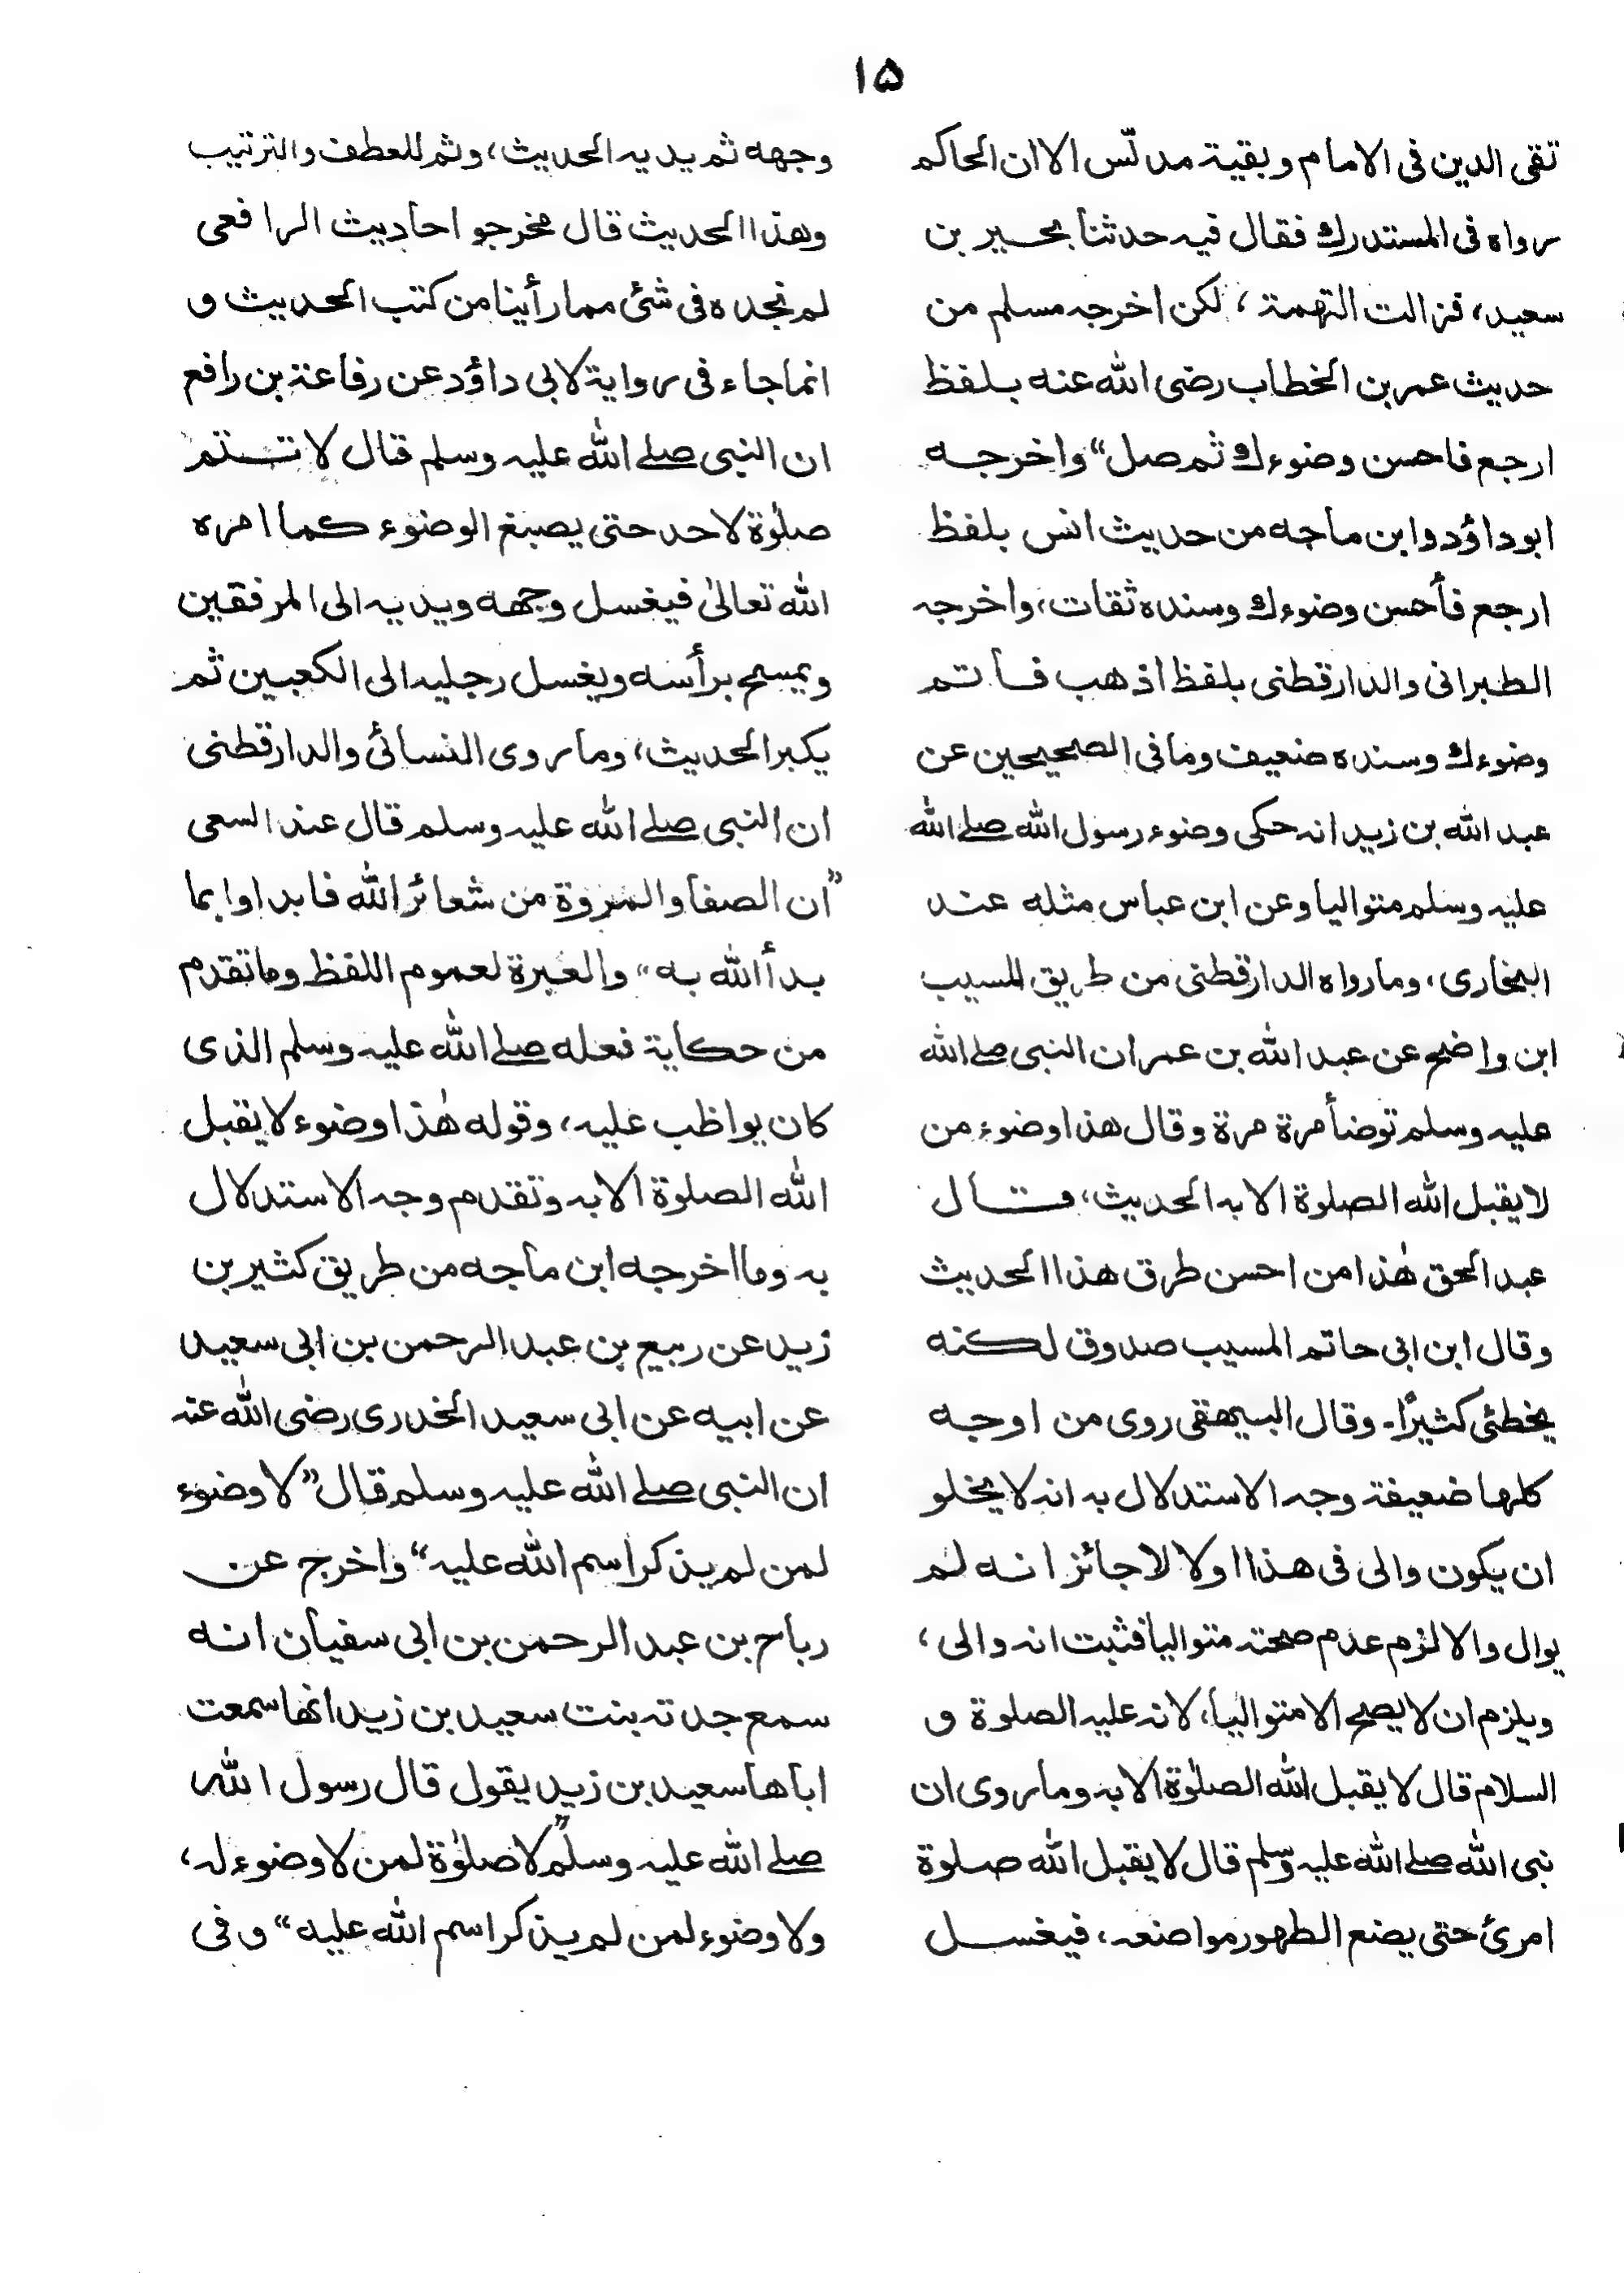 ۱۵
تقی الدین فی الامام وبقیۃ مدلّس الا ان الحاکم
رواہ فی المستدرك فقال فیہ حدثنا بحیر بن
سعید، فزالت التهمۃ، لکن اخرجہ مسلم من
حدیث عمر بن الخطاب رضی اللہ عنه بلفظ
ارجع فاحسن وضوءك ثم صل“ واخرجه
ابوداؤد وابن ماجه من حدیث انس بلفظ
ارجع فأحسن وضوءك وسنده ثقات، واخرجہ
الطبرانی والدارقطنی بلفظ اذهب فأتم
وضوءك وسنده ضعیف ومافی الصحیحین عن
عبد اللہ بن زید انہ حکی وضوء رسول اللہ صلے اللہ
علیہ وسلم متوالیا وعن ابن عباس مثله عند
البخاری، ومارواہ الدارقطنی من طریق المسیب
ابن واضح عن عبد اللہ بن عمر ان النبی صلے اللہ
علیہ وسلم توضأ مرة مرة وقال هذا وضوء من
لا یقبل اللہ الصلوة الا بہ الحدیث، قال
عبد الحق هٰذا من احسن طرق هذا الحدیث
وقال ابن ابی حاتم المسیب صدوق لکنه
یخطئ کثیرًا۔ وقال البیهقی روی من اوجه
کلها ضعیفۃ وجہ الاستدلال بہ انہ لا یخلو
ان یکون والی فی هذا اولا لا جائز انه لم
یوال والا لزم عدم صحتہ متوالیا فثبت انہ والی،
ویلزم ان لا یصح الا متوالیا، لانہ علیہ الصلوة و
السلام قال لا یقبل اللہ الصلوٰة الا بہ وما روی ان
نبی اللہ صلے اللہ علیہ وسلم قال لا یقبل اللہ صلوة
امرئ حتی یضع الطهور مواضعہ، فیغسل
وجهه ثم یدیہ الحدیث، وثم للعطف والترتیب
وهذا الحدیث قال مخرجو احادیث الرافعی
لم نجدہ فی شئ مما رأینا من کتب الحدیث و
انما جاء فی روایۃ لابی داؤد عن رفاعۃ بن رافع
ان النبی صلے اللہ علیہ وسلم قال لا تتم
صلوٰة لاحد حتی یصبغ الوضوء کما امرہ
اللہ تعالیٰ فیغسل وجهه ویدیہ الی المرفقین
ویمسح برأسه ویغسل رجلیہ الی الکعبین ثم
یکبر الحدیث، وما روی النسائی والدارقطنی
ان النبی صلے اللہ علیہ وسلم قال عند السعی
”ان الصفا والمروة من شعائر اللہ فابداوا بما
بدأ اللہ به“ والعبرة لعموم اللفظ وما تقدم
من حکایۃ فعله صلے اللہ علیہ وسلم الذی
کان یواظب علیہ، وقوله هٰذا وضوء لا یقبل
اللہ الصلوة الا بہ وتقدم وجہ الاستدلال
بہ وما اخرجه ابن ماجه من طریق کثیر بن
زید عن ربیع بن عبد الرحمن بن ابی سعید
عن ابیه عن ابی سعید الخدری رضی اللہ عنہ
ان النبی صلے اللہ علیہ وسلم قال ”لا وضوء
لمن لم یذکر اسم اللہ علیہ“ واخرج عن
رباح بن عبد الرحمن بن ابی سفیان انه
سمع جدتہ بنت سعید بن زید انها سمعت
اباها سعید بن زید یقول قال رسول اللہ
صلے اللہ علیہ وسلم ”لا صلوٰة لمن لا وضوء لہ،
ولا وضوء لمن لم یذکر اسم اللہ علیه“ وفی